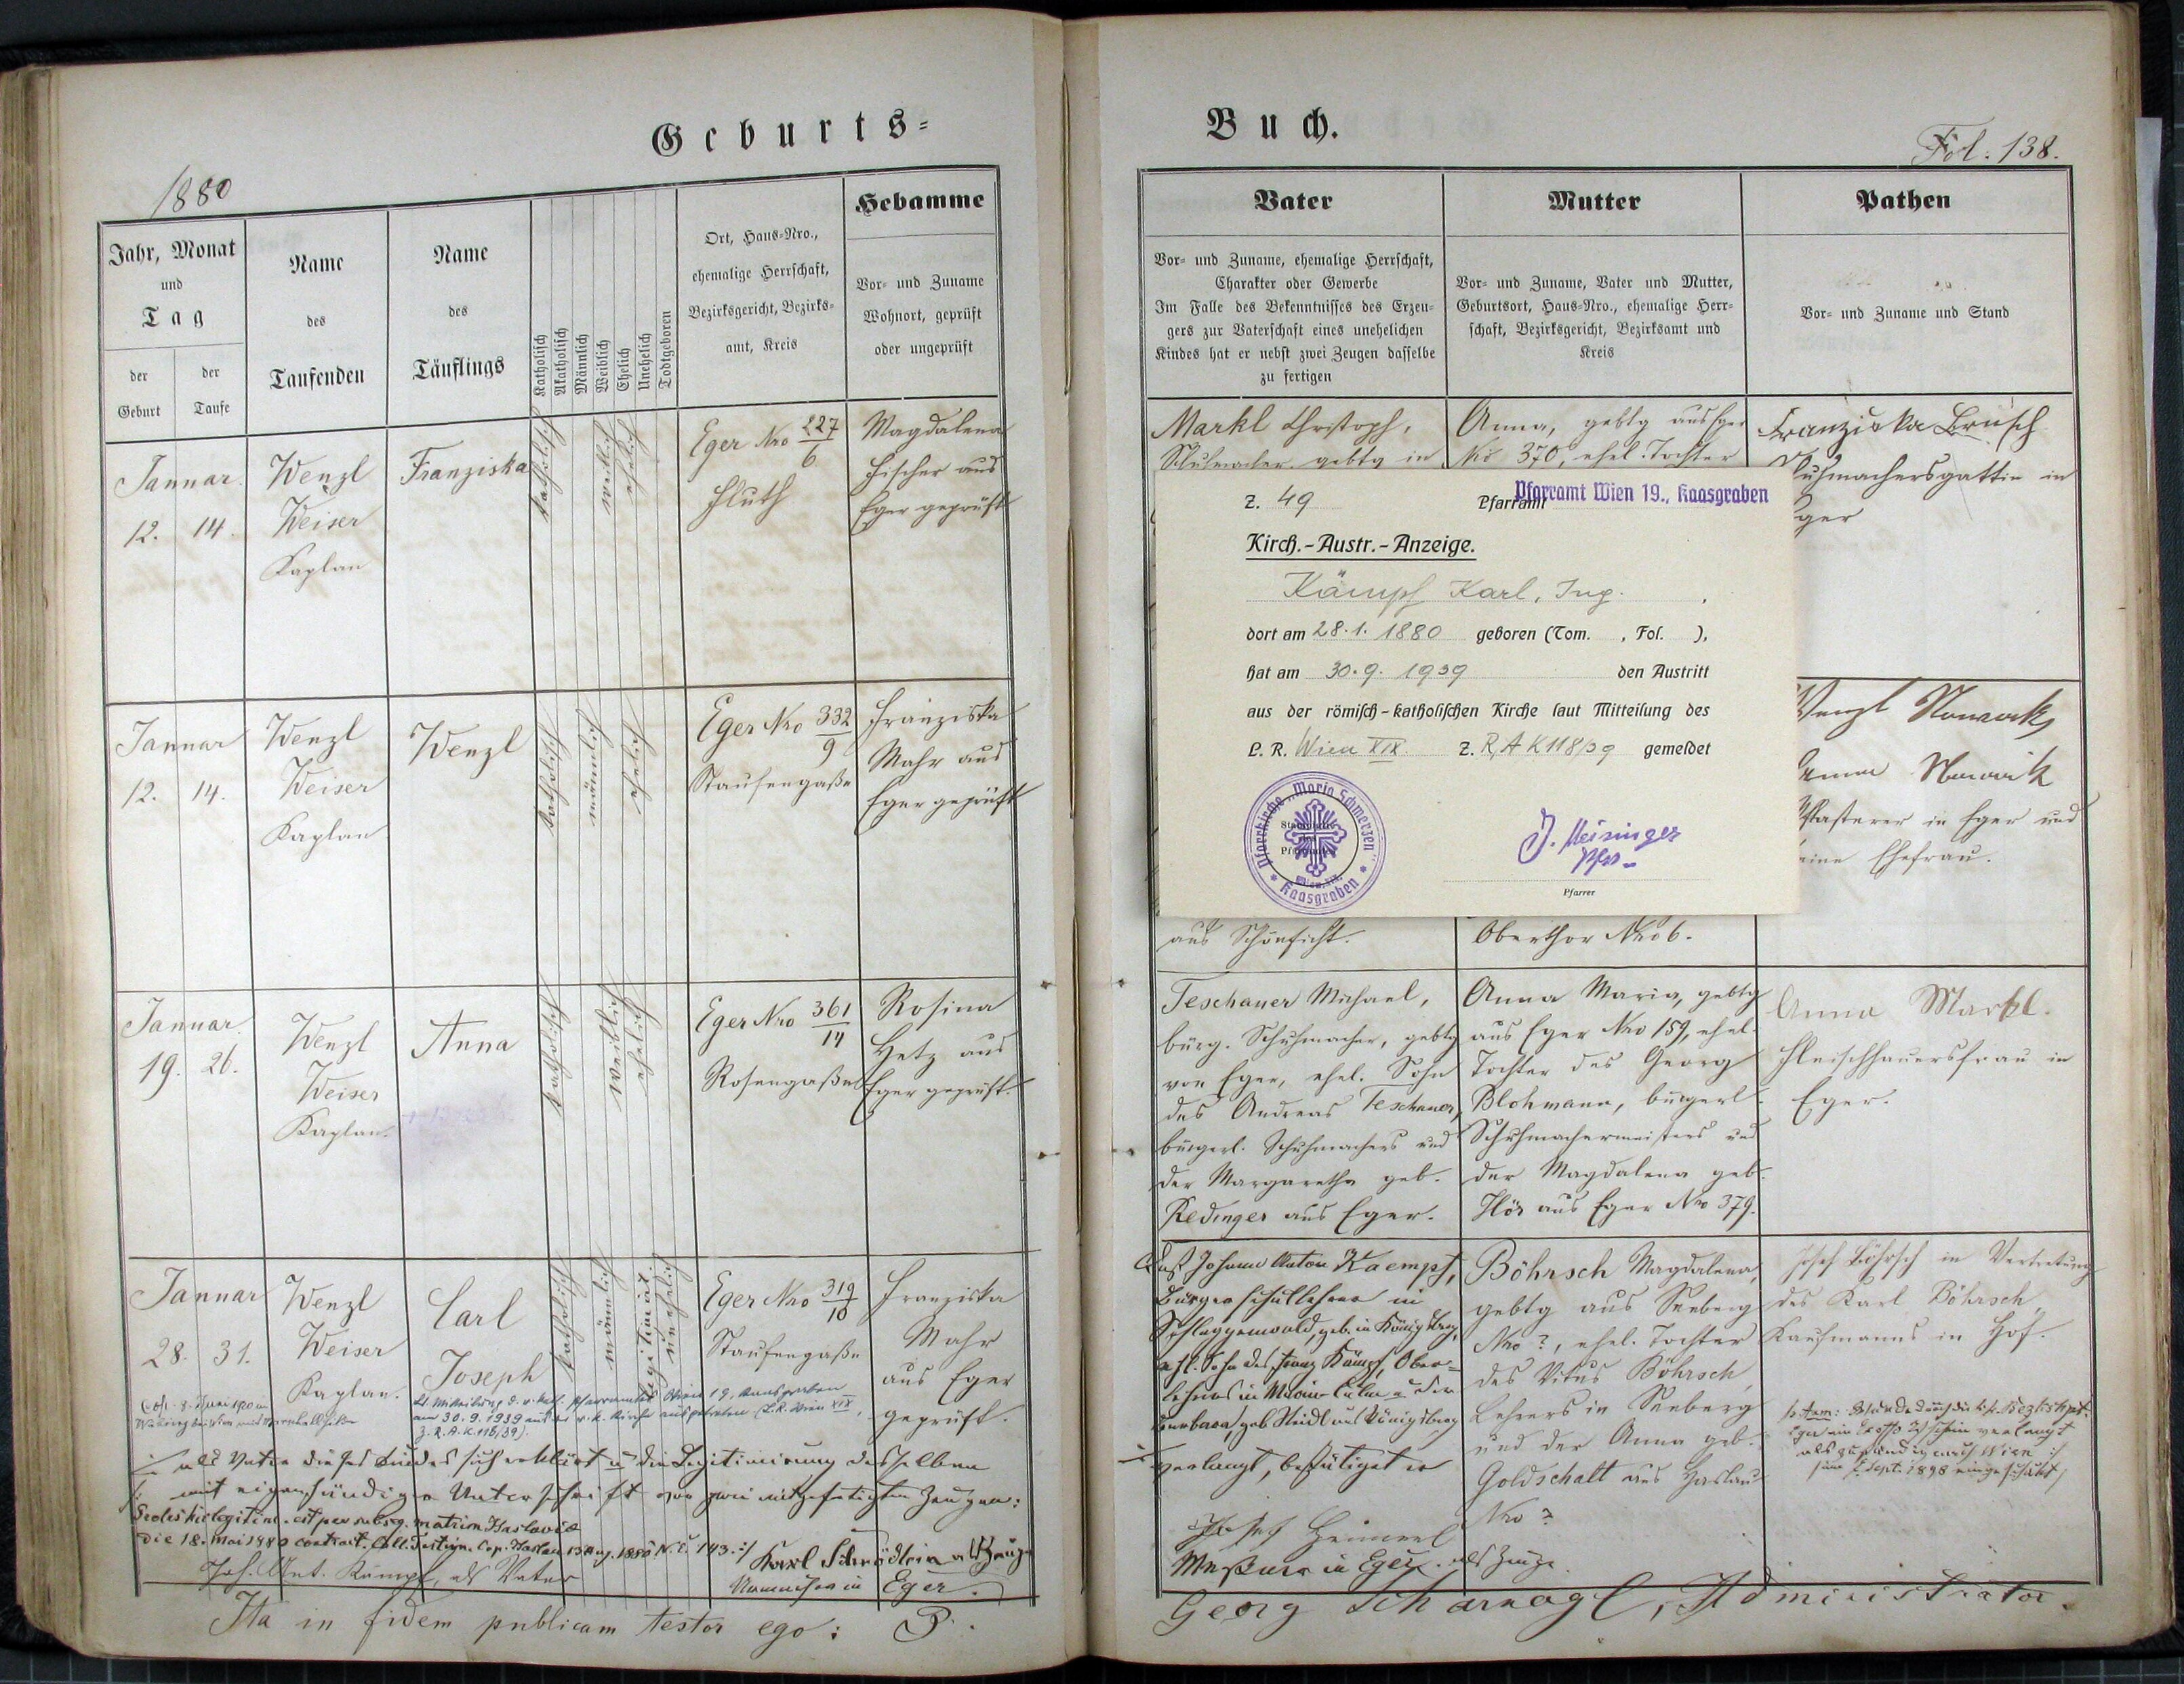 Geburts-
1880
Jahr, Monat
und
Tag
der
Geburt
der
Taufe
Name
des
Taufenden
Name
des
Täuflings
Katholisch
Akatholisch
Männlich
Weiblich
Ehelich
Unehelich
Todtgeboren
Ort, Haus-Nro.,
ehemalige Herrschaft,
Bezirksgericht, Bezirks-
amt, Kreis
Hebamme
Vor- und Zuname
Wohnort, geprüft
oder ungeprüft
Januar
12. 14.
Wenzl
Weiser
Kaplan
Franziska
katholisch
weiblich
ehelich
Eger Nro 227/6
Magdalena
Fischer aus
Eger geprüft
Januar
12. 14.
Wenzl
Weiser
Kaplan
Wenzl
katholisch
männlich
ehelich
Eger Nro 332/9
Staufengaße
Franziska
Mahr aus
Eger geprüft
Januar
19. 26.
Wenzl
Weiser
Kaplan.
Anna
katholisch
weiblich
ehelich
Eger Nro 361/14
Rosengaße
Rosina
Hetz aus
Eger geprüft.
Januar
28. 31.
Wenzl
Weiser
Kaplan.
Carl
Joseph
katholisch
männlich
legitimirt
unehelich
Eger Nro 319/10
Staufengaße
Franziska
Mahr
aus Eger
geprüft.
Lt. Mitteilung d. r. kath. Pfarramtes Wien 19, Kaasgraben
am 30.9.1939 aus der r. k. Kirche ausgetreten (L.R. Wien XIX,
Z. R.A.K. 118/39).
als Vater dieses Kindes sich erklärt u die Legitimirung desselben
mit eigenhändiger Unterschrift vor zwei mitgefertigten Zeugen:
Proles hic legitim. est per subseq. matrim Haslaviae
die 18. Mai 1880 contract. Cop. Haslau 13 Aug. 1880 N. E. 143. :/
Joh. Ant. Kämpf, als Vater
Karl Schrödlein als Zeuge
in Eger.
Ita in fidem publicam testor ego: P.
Buch.
Fol. 138.
Vater
Vor- und Zuname, ehemalige Herrschaft,
Charakter oder Gewerbe
Im Falle des Bekenntnisses des Erzeu-
gers zur Vaterschaft eines unehelichen
Kindes hat er nebst zwei Zeugen dasselbe
zu fertigen
Mutter
Vor- und Zuname, Vater und Mutter,
Geburtsort, Haus-Nro., ehemalige Herr-
schaft, Bezirksgericht, Bezirksamt und
Kreis
Pathen
Vor- und Zuname und Stand
Markl Christoph,
Schuhmacher, gebtg in
Anna, gebtg aus Eger
Nro 370, ehel. Tochter
Franziska Brusch
uhmachersgattin in
ger
Z. 49
Pfarramt
Pfarramt Wien 19., Kaasgraben
Kirch.-Austr.-Anzeige.
Kämpf Karl, Ing.
dort am 28.1.1880 geboren (Tom. , Fol. ),
hat am 30.9.1939 den Austritt
aus der römisch-katholischen Kirche laut Mitteilung des
L. R. Wien XIX. Z. R, A K 118/39 gemeldet
Pfarrkirche "Maria Schmerzen"
Kaasgraben
J. Meisinger
Pfarrer
Wenzl Nowak
Nowak
Pflasterer in Eger und
eine Ehefrau.
aus Schönficht.
Oberthor Nro 6.
Teschauer Michael,
bürg. Schuhmacher, gebtg
von Eger, ehel. Sohn
des Andreas Teschauer,
bürgerl. Schuhmachers und
der Margaretha geb.
Redinger aus Eger.
Anna Maria, gebtg
aus Eger Nro 159, ehel.
Tochter des Georg
Blohmann, bürgerl.
Schuhmachermeisters und
der Magdalena geb.
Hör aus Eger Nro 379.
Anna Markl.
Fleischhauersfrau in
Eger.
Daß Johann Anton Kaempf,
Bürgerschullehrer in
Schlaggenwald, geb. in Königsberg,
ehl. Sohn des Franz Kämpf, Ober-
lehrers in Maria-Culm u der
Barbara, geb. Heidl aus Königsberg
verlangt, bestätiget er
Josef Heinerl
in Eger. als Zeuge
Böhrsch Magdalena,
gebtg aus Seeberg
Nro ?, ehel. Tochter
des Vitus Böhrsch,
Lehrers in Seeberg
und der Anna geb.
Goldschalt aus Haslau
Nro ?
Josef Böhrsch in Vertretung
des Karl Böhrsch,
Kaufmanns in Hof.
Eger ein verlangt
als zuständig nach Wien
Sept. 1898
Georg Scharnagl, Administrator.